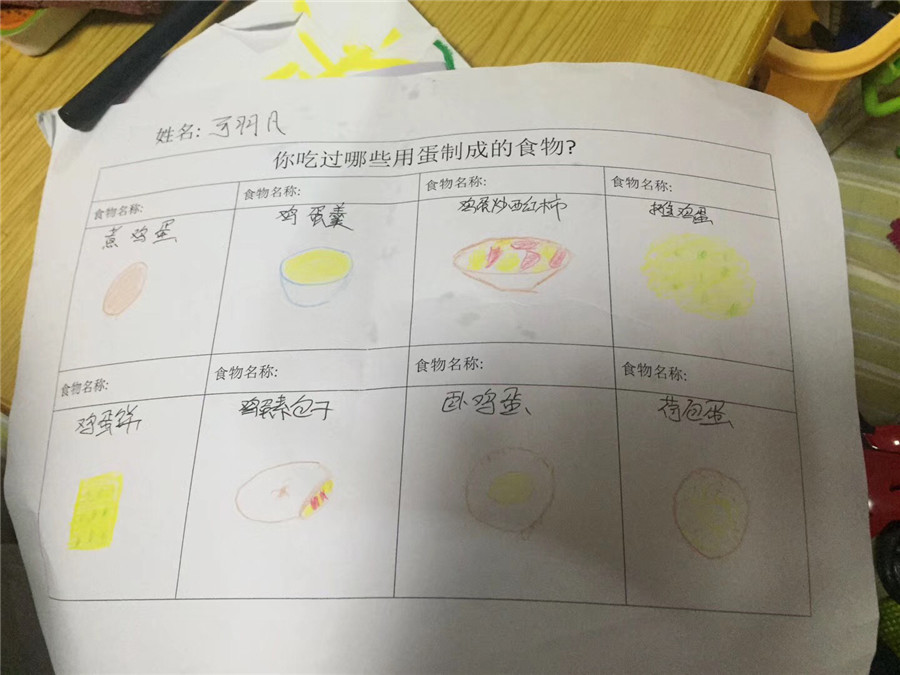 姓名: 于羽凡
你吃过哪些用蛋制成的食物?
食物名称:
食物名称:
食物名称:
食物名称:
煮鸡蛋
鸡蛋羹
鸡蛋炒西红柿
摊鸡蛋
食物名称:
食物名称:
食物名称:
食物名称:
鸡蛋饼
鸡蛋素包子
卧鸡蛋
荷包蛋